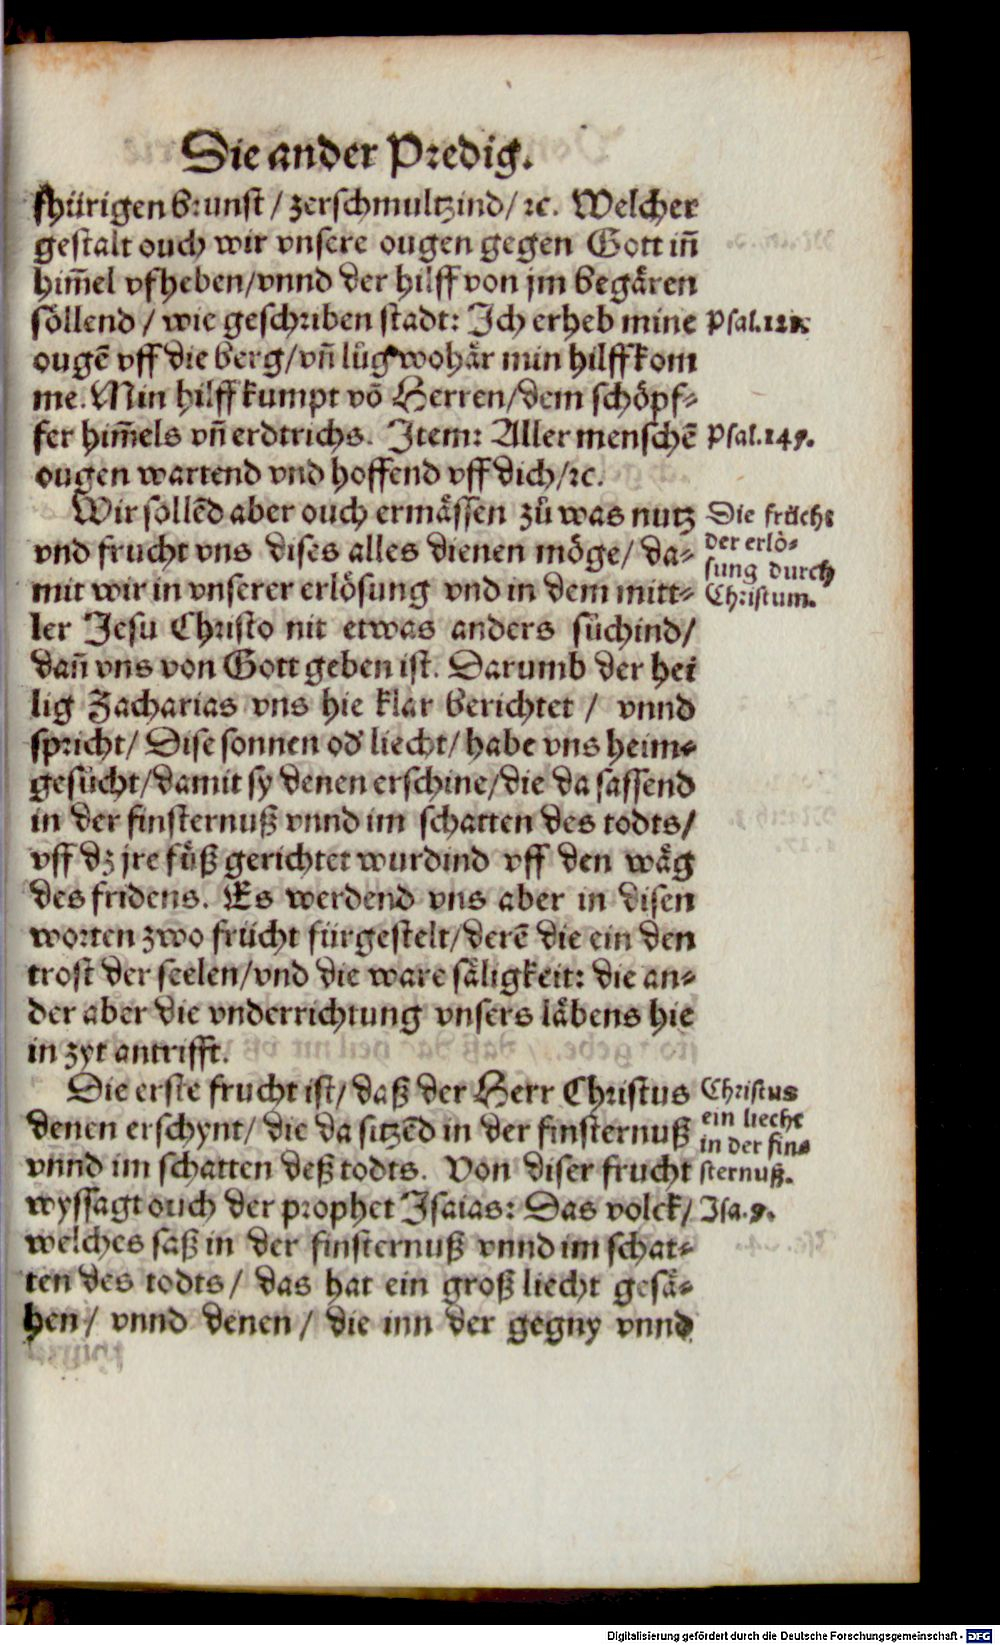 Die ander Predig.
fhürigen brunst / zerschmultzind / ꝛc. Welcher
gestalt ouch wir vnsere ougen gegen Gott in̄
him̄el vfheben / vnnd der hilff von jm begären
söllend / wie geschriben stadt: Ich erheb mine
Psal.121.
ougē vff die berg / vn̄ lůg wohär min hilff kom
me. Min hilff kumpt vō Herren / dem schöpf⸗
fer him̄els vn̄ erdtrichs. Item: Aller menschē
Psal.145.
ougen wartend vnd hoffend vff dich / ꝛc.
Wir söllēd aber ouch ermässen zů was nutz
vnd frucht vns dises alles dienen möge / da⸗
mit wir in vnserer erlösung vnd in dem mitt⸗
Die frücht
der erlö⸗
sung durch
Christum.
ler Jesu Christo nit etwas anders sůchind /
dan̄ vns von Gott geben ist. Darumb der hei
lig Zacharias vns hie klar berichtet / vnnd
spricht / Dise sonnen od' liecht / habe vns heim⸗
gesůcht / damit sy denen erschine / die da sassend
in der finsternuß vnnd im schatten des todts /
vff dz jre füß gerichtet wurdind vff den wäg
des fridens. Es werdend vns aber in disen
worten zwo frücht fürgestelt / derē die ein den
trost der seelen / vnd die ware säligkeit: die an⸗
der aber die vnderrichtung vnsers läbens hie
in zyt antrifft.
Die erste frucht ist / daß der Herr Christus
denen erschynt / die da sitzēd in der finsternuß
vnnd im schatten deß todts. Von diser frucht
Christus
ein liecht
in der fin⸗
sternuß.
wyssagt ouch der prophet Isaias: Das volck /
Isa.9.
welches saß in der finsternuß vnnd im schat⸗
ten des todts / das hat ein groß liecht gesä⸗
hen / vnnd denen / die inn der gegny vnnd
Digitalisierung gefördert durch die Deutsche Forschungsgemeinschaft - DFG